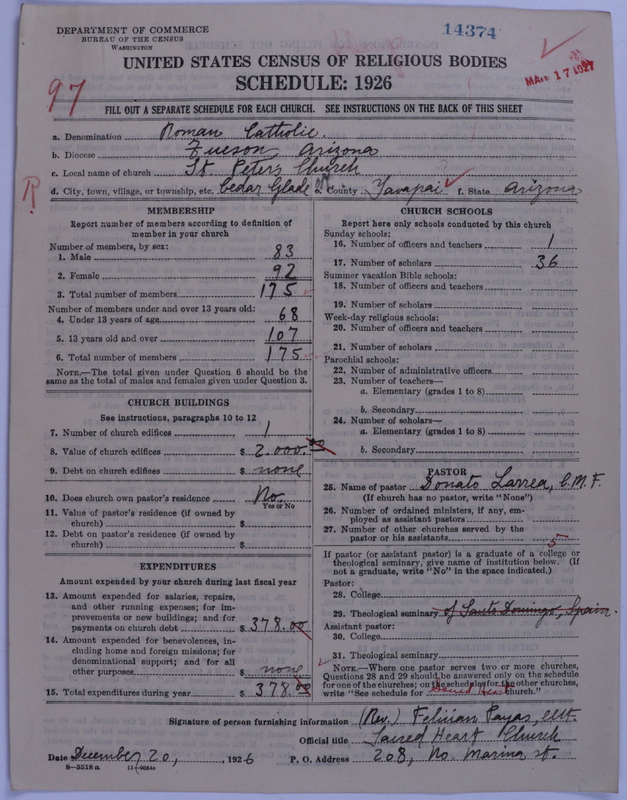 DEPARTMENT OF COMMERCE
BUREAU OF THE CENSUS
WASHINGTON
14374
MAR 17 1927
UNITED STATES CENSUS OF RELIGIOUS BODIES
SCHEDULE: 1926
97
FILL OUT A SEPARATE SCHEDULE FOR EACH CHURCH. SEE INSTRUCTIONS ON THE BACK OF THIS SHEET
a. Denomination Roman Catholic.
b. Diocese Tucson, Arizona
c. Local name of church St. Peters Church
R
d. City, town, village, or township, etc. Cedar Glade e. County Yavapai f. State Arizona
MEMBERSHIP
Report number of members according to definition of
member in your church
Number of members, by sex:
1. Male 83
2. Female 92
3. Total number of members 175
Number of members under and over 13 years old:
4. Under 13 years of age 68
5. 13 years old and over 107
6. Total number of members 175
NOTE.—The total given under Question 6 should be
same as the total of males and females given under Question 3.
CHURCH BUILDINGS
See instructions, paragraphs 10 to 12
7. Number of church edifices 1
8. Value of church edifices $ 2.000.00
9. Debt on church edifices $ none
10. Does church own pastor's residence No
Yes or No
11. Value of pastor's residence (if owned by
church) $
12. Debt on pastor's residence (if owned by
church) $
EXPENDITURES
Amount expended by your church during last fiscal year
13. Amount expended for salaries, repairs,
and other running expenses; for im-
provements or new buildings; and for
payments on church debt $ 378.00
14. Amount expended for benevolences, in-
cluding home and foreign missions; for
denominational support; and for all
other purposes $ none
15. Total expenditures during year $ 378.00
CHURCH SCHOOLS
Report here only schools conducted by this church
Sunday schools:
16. Number of officers and teachers 1
17. Number of scholars 36
Summer vacation Bible schools:
18. Number of officers and teachers
19. Number of scholars
Week-day religious schools:
20. Number of officers and teachers
21. Number of scholars
Parochial schools:
22. Number of administrative officers
23. Number of teachers—
a. Elementary (grades 1 to 8)
b. Secondary
24. Number of scholars—
a. Elementary (grades 1 to 8)
b. Secondary
PASTOR
25. Name of pastor Donato Larrea, C.M.F.
(If church has no pastor, write "None")
26. Number of ordained ministers, if any, em-
ployed as assistant pastors
27. Number of other churches served by the
pastor or his assistants 5
If pastor (or assistant pastor) is a graduate of a college or
theological seminary, give name of institution below. (If
not a graduate, write "No" in the space indicated.)
Pastor:
28. College
29. Theological seminary of Santo Domingo, Spain.
Assistant pastor:
30. College
31. Theological seminary
NOTE.—Where one pastor serves two or more churches,
Questions 28 and 29 should be answered only on the schedule
for one of the churches; on the schedules for the other churches,
write "See schedule for Sacred Heart church."
Signature of person furnishing information (Rev.) Felician Payas, cmf.
Official title Sacred Heart Church
Date December 20, 1926 P. O. Address 208, No. Marina St.
8—5518 a 11—9664c